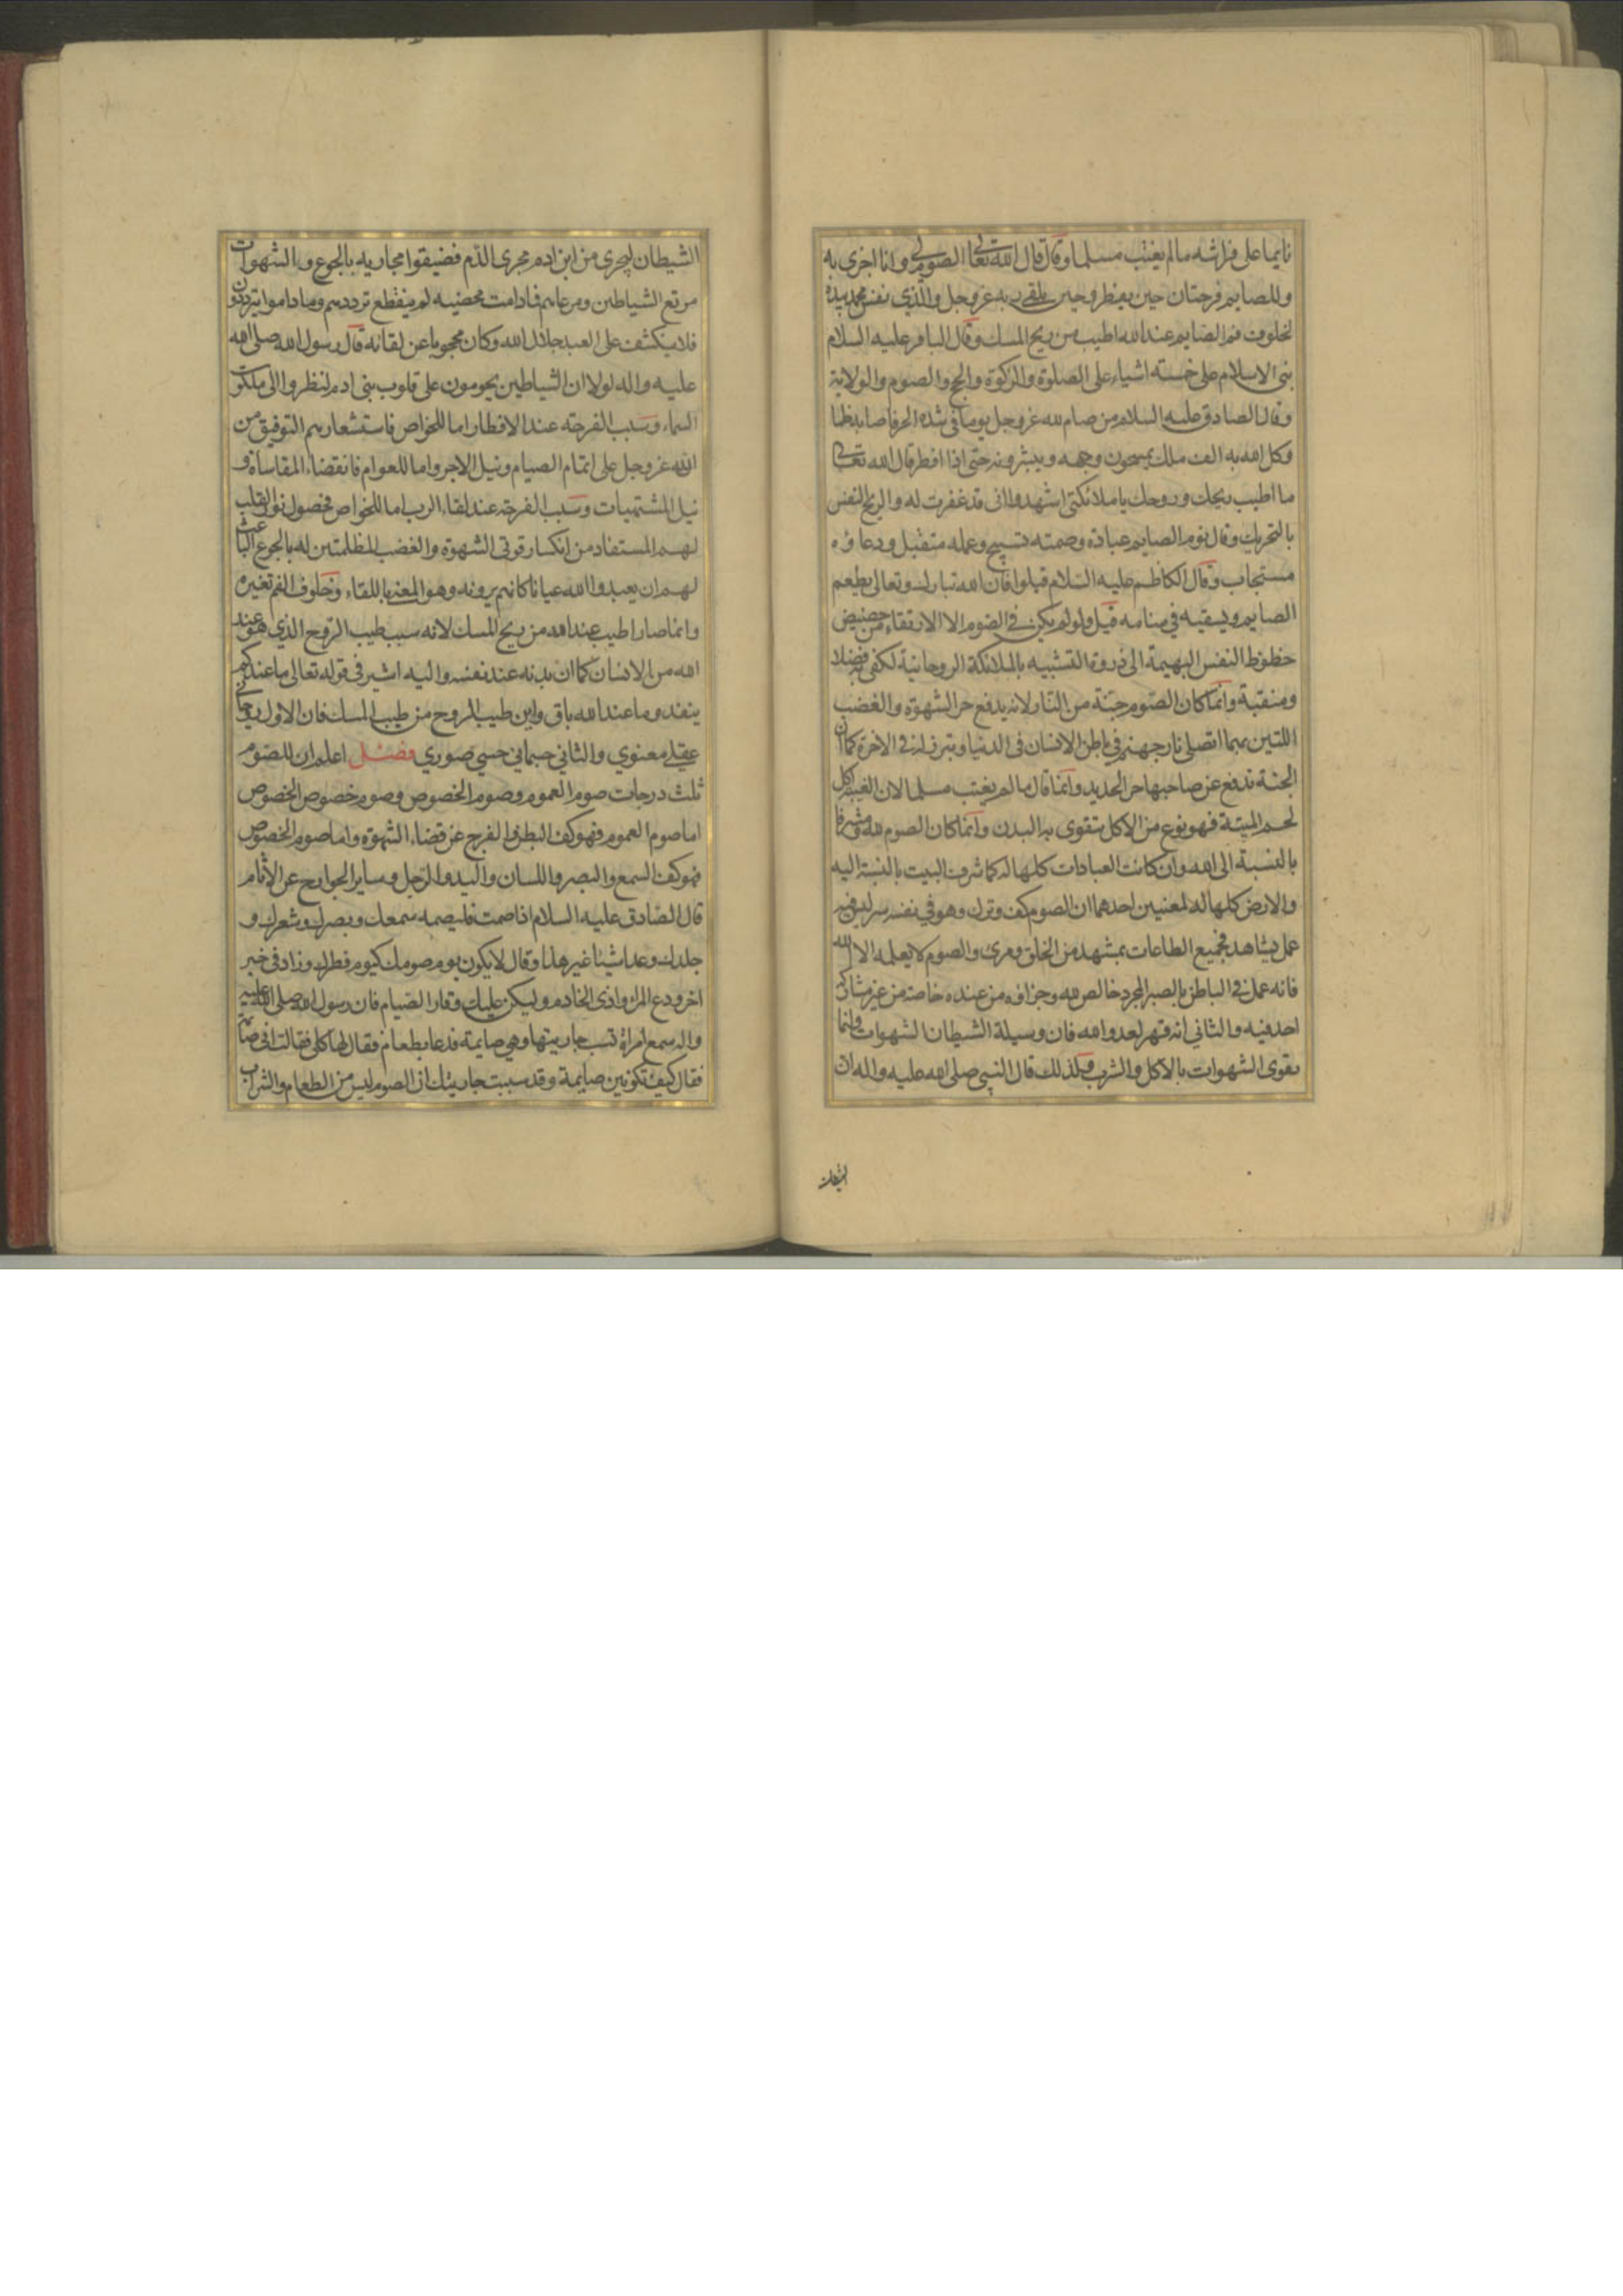 نايما على فراشه مالم يغتب مسلما وقال قال الله تعالى الصوم لى وانا اجزى به
وللصايم فرحتان حين يفطر وحين يلقى ربه عز وجل والذي نفس محمد بيده
لخلوف فم الصايم عند الله اطيب من ريح المسك وقال الباقر عليه السلام
بنى الاسلام على خمسة اشياء على الصلوة والزكوة والحج والصوم والولاية
وقال الصادق عليه السلام من صام لله عز وجل يوما فى شدة الحر فاصابه ظما
وكل الله به الف ملك يمسحون وجهه ويبشرونه حتى اذا افطر قال الله تعالى
ما اطيب ريحك وروحك يا ملائكتى اشهدوا انى قد غفرت له والريح النفس
بالتحريك وقال نوم الصايم عبادة وصمته تسبيح وعمله متقبل ودعاؤه
مستجاب وقال الكاظم عليه السلام قيلوا فان الله تبارك وتعالى يطعم
الصايم ويسقيه فى منامه قيل ولو لم يكن فى الصوم الا الارتقاء من حضيض
حظوظ النفس البهيمة الى ذروة التشبيه بالملائكة الروحانية لكفى به فضلا
ومنقبة وانما كان الصوم جنة من النار لانه يدفع حر الشهوة والغضب
اللتين بهما تصلى نار جهنم فى باطن الانسان فى الدنيا وتبرز له فى الاخرة كما ان
الجنة تدفع عن صاحبها حر الحديد وانما قال مالم يغتب مسلما لان الغيبة اكل
لحم الميتة فهو نوع من الاكل يتقوى به البدن وانما كان الصوم لله ومشرفا
بالنسبة الى الله وان كانت العبادات كلها له كما شرف البيت بالنسبة اليه
والارض كلها له لمعنيين احدهما ان الصوم كف وترك وهو فى نفسه سر ليس فيه
عمل يشاهد فجميع الطاعات بمشهد من الخلق ومرئ والصوم لا يعلمه الا الله
فانه عمل فى الباطن بالصبر المجرد خالص لله وجزاؤه من عنده خاصة من غير مشاركة
احد فيه والثاني انه قهر لعدو الله فان وسيلة الشيطان الشهوات وانما
يقوى الشهوات بالاكل والشرب وكذلك قال النبي صلى الله عليه واله ان
الشيطان
الشيطان ليجرى من ابن ادم مجرى الدم فضيقوا مجاريه بالجوع والشهوات
مرتع الشياطين ومرعاهم فما دامت مخصبة لم ينقطع ترددهم وما داموا يترددون
فلا ينكشف على العبد جلال الله وكان محجوبا عن لقائه قال رسول الله صلى الله
عليه واله لولا ان الشياطين يحومون على قلوب بنى ادم لنظروا الى ملكوت
السماء وسبب الفرحة عند الافطار اما للخواص فاستشعارهم التوفيق من
الله عز وجل على اتمام الصيام ونيل الاجر واما للعوام فانقضاء المقاساة و
نيل المشتهيات وسبب الفرحة عند لقاء الرب اما للخواص فحصول نور القلب
لهم المستفاد من انكسار قوتى الشهوة والغضب المظلمتين له بالجوع الباعث
لهم ان يعبدوا الله عيانا كانهم يرونه وهو المعني باللقاء وخلوف الفم تغيره
وانما صار اطيب عند الله من ريح المسك لانه سبب طيب الروح الذي هو عند
الله من الانسان كما ان بدنه عند نفسه واليه اشير فى قوله تعالى ما عندكم
ينفد وما عند الله باق واين طيب الروح من طيب المسك فان الاول روحاني
عقلي معنوي والثاني جسماني حسي صوري فصل اعلم ان للصوم
ثلث درجات صوم العموم وصوم الخصوص وصوم خصوص الخصوص
اما صوم العموم فهو كف البطن والفرج عن قضاء الشهوة واما صوم الخصوص
فهو كف السمع والبصر واللسان واليد والرجل وساير الجوارح عن الآثام
قال الصادق عليه السلام اذا صمت فليصم سمعك وبصرك وشعرك و
جلدك وعد اشيئا غير هذا وقال لا يكون يوم صومك كيوم فطرك وزاد فى خبر
اخر ودع المراء واذى الخادم وليكن عليك وقار الصيام فان رسول الله صلى الله عليه
واله سمع امراة تسب جاريتها وهي صايمة فدعا بطعام فقال لها كلى فقالت انى صايمة
فقال كيف تكونين صايمة وقد سببت جاريتك ان الصوم ليس من الطعام والشراب